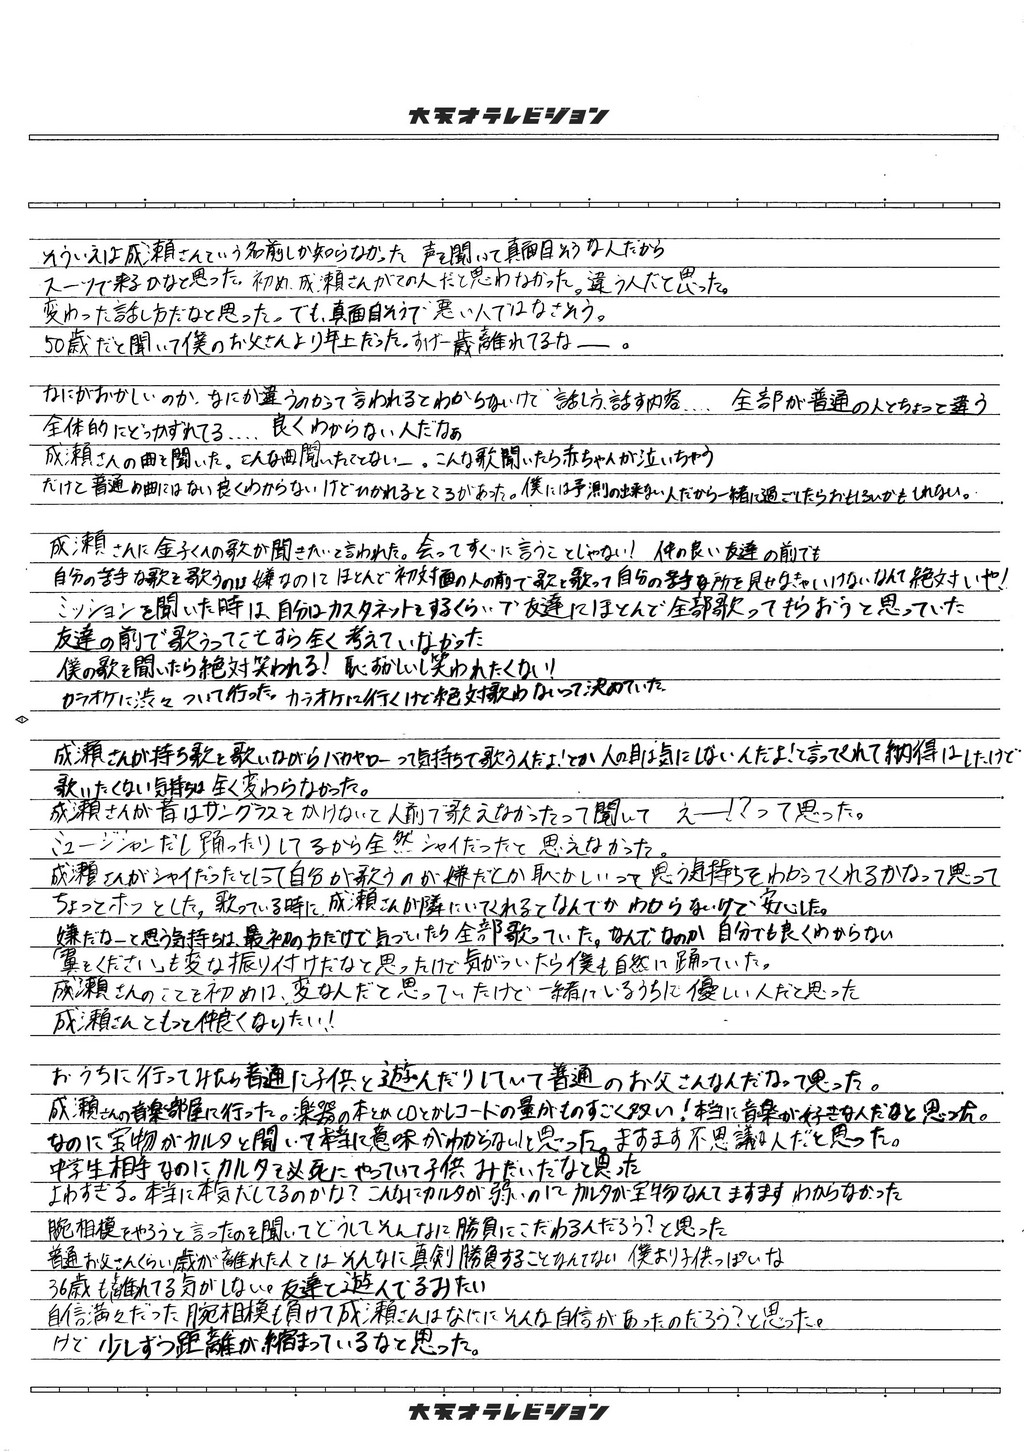 大天才テレビジョン
そういえば成瀬さんという名前しか知らなかった 声を聞いて真面目そうな人だから
スーツで来るかなと思った。初め、成瀬さんがその人だと思わなかった。違う人だと思った。
変わった話し方だなと思った。でも、真面目そうで悪い人ではなさそう。
50歳だと聞いて僕のお父さんより年上だった。すげー歳離れてるなー。
なにがおかしいのか、なにが違うのかって言われるとわからないけど 話し方、話す内容.... 全部が普通の人とちょっと違う
全体的にどっかずれてる.... 良くわからない人だなぁ
成瀬さんの曲を聞いた。こんな曲聞いたことない―。こんな歌聞いたら赤ちゃんが泣いちゃう
だけど普通の曲にはない良くわからないけどひかれるところがあった。僕には予測の出来ない人だから一緒に過ごしたらおもしろいかもしれない。
成瀬さんに金子くんの歌が聞きたいと言われた。会ってすぐに言うことじゃない! 仲の良い友達の前でも
自分の苦手な歌を歌うのは嫌なのにほとんど初対面の人の前で歌を歌って自分の苦手な所を見せなきゃいけないなんて絶対いや!
ミッションを聞いた時は、自分はカスタネットをするくらいで友達にほとんど全部歌ってもらおうと思っていた
友達の前で歌うってことすら全く考えていなかった
僕の歌を聞いたら絶対笑われる! 恥ずかしいし笑われたくない!
カラオケに渋々ついて行った。カラオケに行くけど絶対歌わないって決めていた。
成瀬さんが持ち歌を歌いながらバカヤローって気持ちで歌うんだよ!とか人の目は気にしないんだよ!と言ってくれて納得はしたけど
歌いたくない気持ちは全く変わらなかった。
成瀬さんが昔はサングラスをかけないと人前で歌えなかったって聞して えー!?って思った。
ミュージシャンだし踊ったりしてるから全然シャイだったと思えなかった。
成瀬さんがシャイだったとしって自分が歌うのが嫌だとか恥かしいって思う気持ちをわかってくれるかなって思って
ちょっとホッとした。歌っている時に、成瀬さんが隣にいてくれるとなんでかわからないけど安心した。
嫌だなーと思う気持ちは、最初の方だけで気づいたら全部歌っていた。なんでなのか自分でも良くわからない
「翼をください」も変な振り付けだなと思ったけど気がついたら僕も自然に踊っていた。
成瀬さんのことを初めは、変な人だと思っていたけど一緒にいるうちに優しい人だと思った
成瀬さんともっと仲良くなりたい!
おうちに行ってみたら普通に子供と遊んだりしていて普通のお父さんなんだなって思った。
成瀬さんの音楽部屋に行った。楽器の本とかCDとかレコードの量がものすごく多い!本当に音楽が好きなんだなと思った。
なのに宝物がカルタと聞いて本当に意味がわからない!と思った。ますます不思議な人だと思った。
中学生相手なのにカルタを必死にやっていて子供みたいだなと思った
よわすぎる。本当に本気だしてるのかな?こんなにカルタが弱いのにカルタが宝物なんてますますわからなかった
腕相撲をやろうと言ったのを聞いてどうしてそんなに勝負にこだわるんだろう?と思った
普通お父さんくらい歳が離れた人とはそんなに真剣勝負することなんてない 僕より子供っぽいな
36歳も離れてる気がしない。友達と遊んでるみたい
自信満々だった腕相撲も負けて成瀬さんはなににそんな自信があったのだろう?と思った。
けど 少しずつ距離が縮まっているなと思った。
大天才テレビジョン